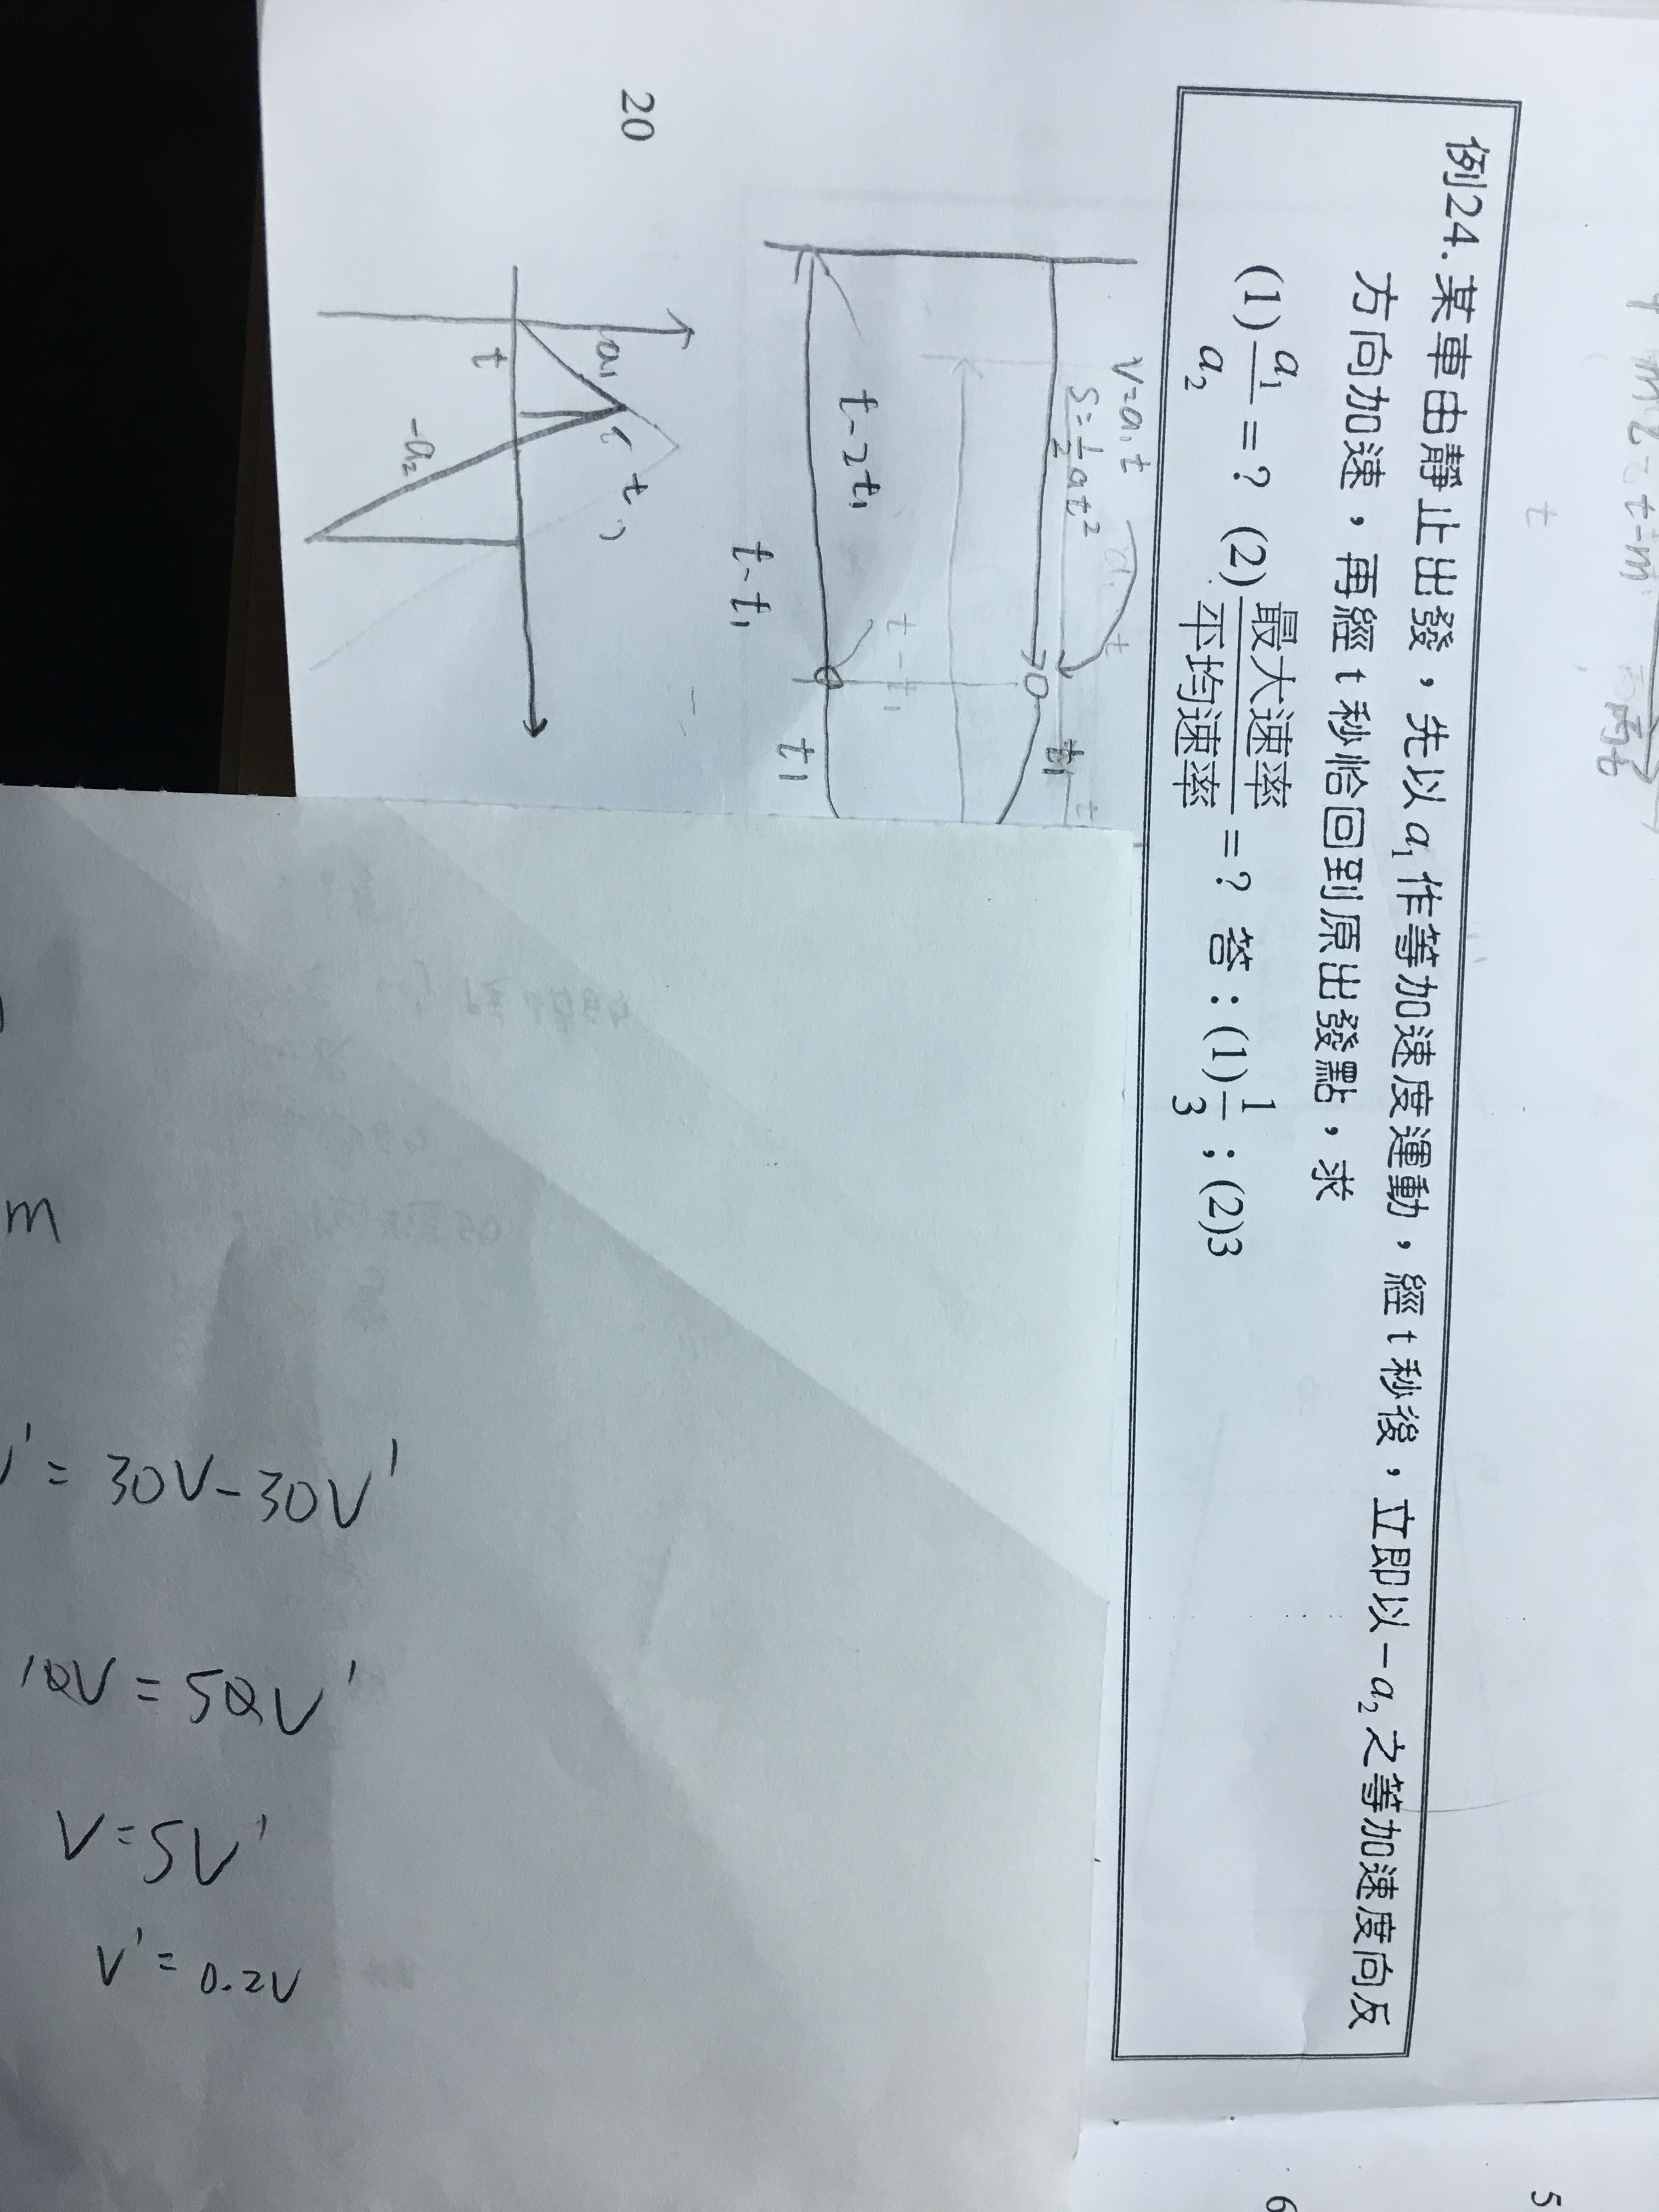 例24.某車由靜止出發，先以a₁作等加速度運動，經t秒後，立即以−a₂之等加速度向反
方向加速，再經t秒恰回到原出發點，求
(1) a₁/a₂ =？ (2) 最大速率/平均速率 =？ 答：(1) 1/3；(2)3
V=a₁t
S=½at²
t₁
t-2t₁
t-t₁
t₁
t-t₁
a₁
t
t
-a₂
20
m
V'=30V-30V'
10V=50V'
V=5V'
V'=0.2V
5
6